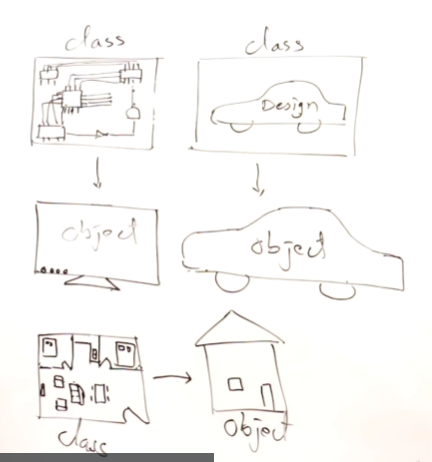 class
class
Design
object
object
class
object